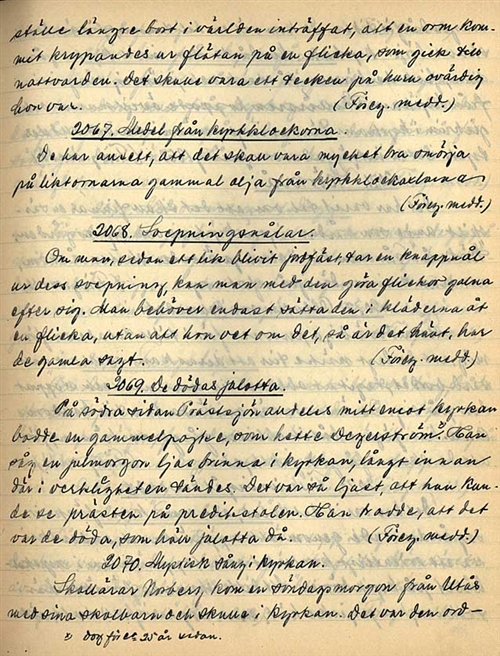 ställe längre bort i världen inträffat, att en orm kom-
mit krypandes ur flätan på en flicka, som gick till
nattvarden. Det skulle vara ett tecken på huru ovärdig
hon var. (Föreg. medd.)
2067. Medel från kyrkklockorna.
De har ansett, att det skall vara mycket bra smörja
på liktornarna gammal olja från kyrkklockaxlarna
(Föreg. medd.)
2068. Svepningsnålar.
Om man, sedan ett lik blivit jordfäst, tar en knappnål
ur dess svepning, kan man med den göra flickor galna
efter sig. Man behöver endast sätta den i kläderna åt
en flicka, utan att hon vet om det, så är det klart, har
de gamla sagt. (Föreg. medd.)
2069. De dödas julotta.
På södra sidan Prästsjön alldeles mitt emot kyrkan
bodde en gammelpojke, som hette Degerström.x Han
såg en julmorgon ljus brinna i kyrkan, långt innan
där i verkligheten tändes. Det var så ljust, att han kun-
de se prästen på predikstolen. Han trodde, att det
var de döda, som höll julotta då. (Föreg. medd.)
2070. Mystisk sång i kyrkan.
Skollärar Norberg kom en söndagsmorgon från Utås
med sina skolbarn och skulle i kyrkan. Det var den ord-
x dog för c:a 25 år sedan.